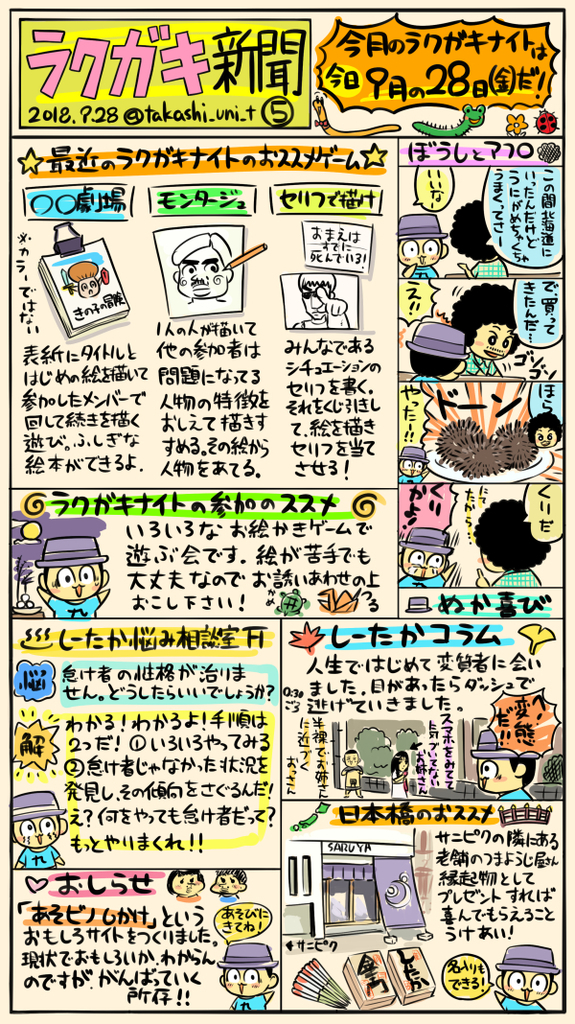 ラクガキ新聞
2018.9.28 @takashi_uni_t ⑤
今月のラクガキナイトは
今日 9月の28日(金)だ!
☆最近のラクガキナイトのおススメゲーム☆
○○劇場
※カラーではない
きの子の冒険
表紙にタイトルと
はじめの絵を描いて
参加したメンバーで
回して続きを描く
遊び。ふしぎな
絵本ができるよ.
モンタージュ
1人の人が描いて
他の参加者は
問題になってる
人物の特徴を
おしえて描きす
すめる。その絵から
人物をあてる.
セリフで描け
おまえは
すでに
死んでいる!
みんなである
シチュエーションの
セリフを書く.
それをくじ引きし
て、絵を描き
セリフを当て
させる!
ぼうしとアフロ
この間北海道に
いったんだけど
うにがめちゃくちゃ
うまくってさー
いいな
で、買って
きたんだ…
え!!
ゴソゴソ
ほら
ドーン
やったー!!
くりだ
にてたから…
くりかよ!
ぬか喜び
ラクガキナイトの参加のススメ
いろいろなお絵かきゲームで
遊ぶ会です. 絵が苦手でも
大丈夫なのでお誘いあわせの上
おこし下さい!
かめ
つる
しーたか悩み相談室
悩
怠け者の性格が治りま
せん。どうしたらいいでしょうか?
解
わかる!わかるよ!手順は
2つだ! ①いろいろやってみる
②怠け者じゃなかった状況を
発見し、その傾向をさぐるんだ!
え?何をやっても怠け者だって?
もっとやりまくれ!!
九
しーたかコラム
人生ではじめて変質者に会い
ました. 目があったらダッシュで
逃げていきました。
0:30ごろ
半裸でお姉さんに近づくおっさん
スマホをみてて
気がついてない
お姉さん
へ、変態だ!!
日本橋のおススメ
SARUYA
←サニピク
サニピクの隣にある
老舗のつまようじ屋さん
縁起物として
プレゼントすれば
喜んでもらえること
うけあい!
しーたか
名入りも
できる!
♡おしらせ
「あそビノしかけ」という
おもしろサイトをつくりました.
現状でおもしろいか、わからん
のですが、がんばっていく
所存!!
あそびに
きてね!